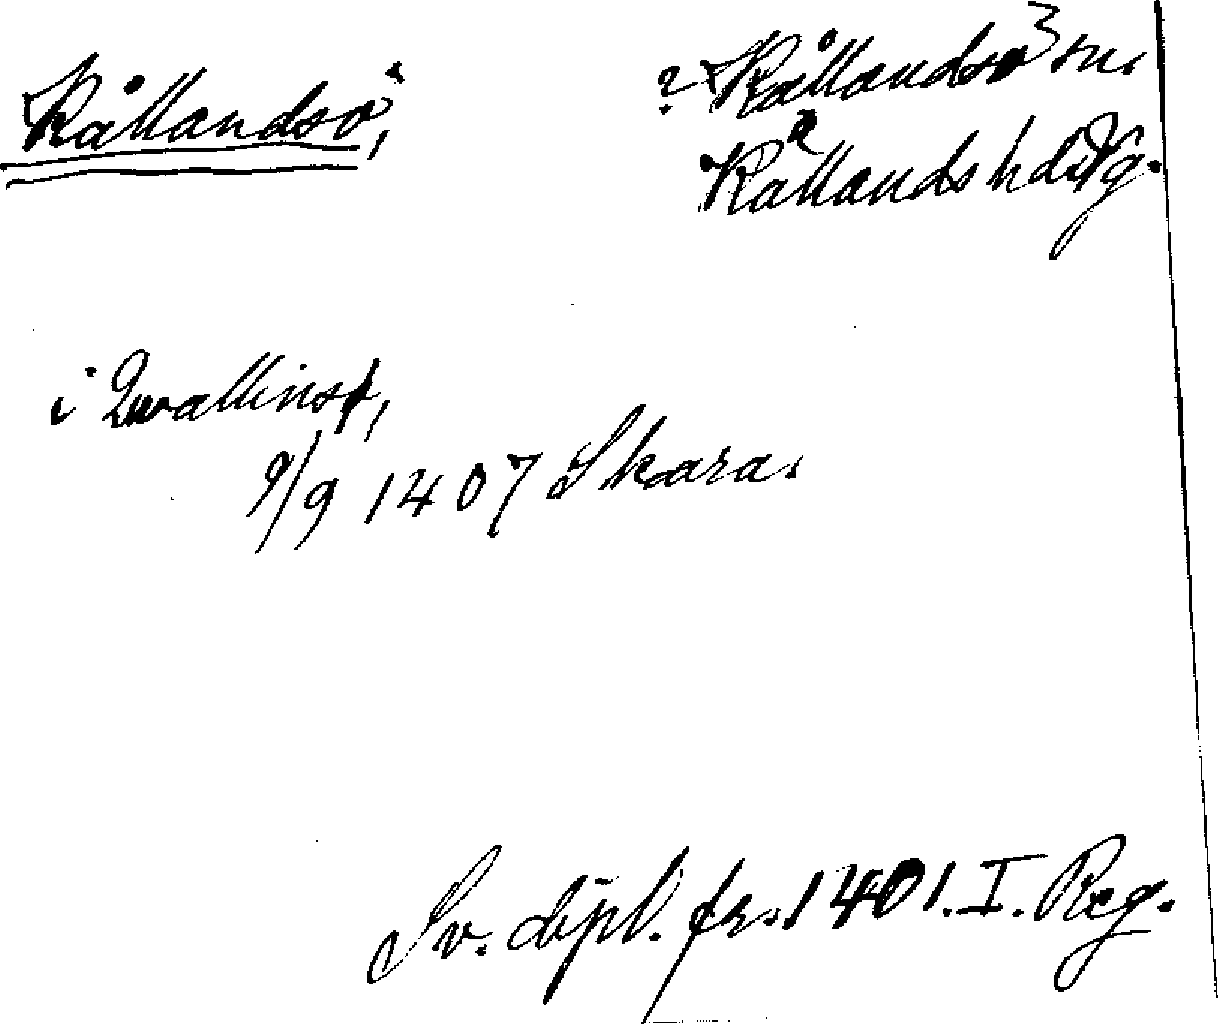 Kållandsö, ? Kållandsö sn.
Kållands hd Vg.
i Qwallinsø,
9/9 1407 Skara.
Sv. dipl. fr. 1401. I. Reg.